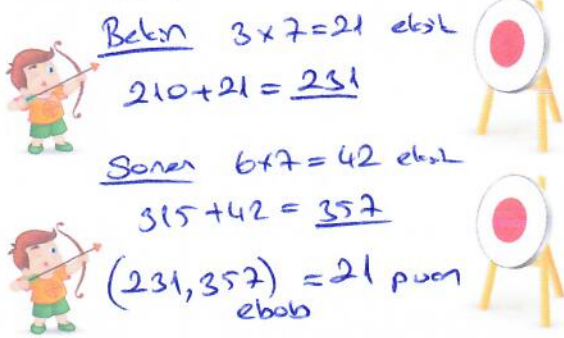 Bekin 3 x 7 = 21 eksik
210 + 21 = 231
Soner 6 x 7 = 42 eksik
315 + 42 = 357
(231, 357) = 21 puan
ebob